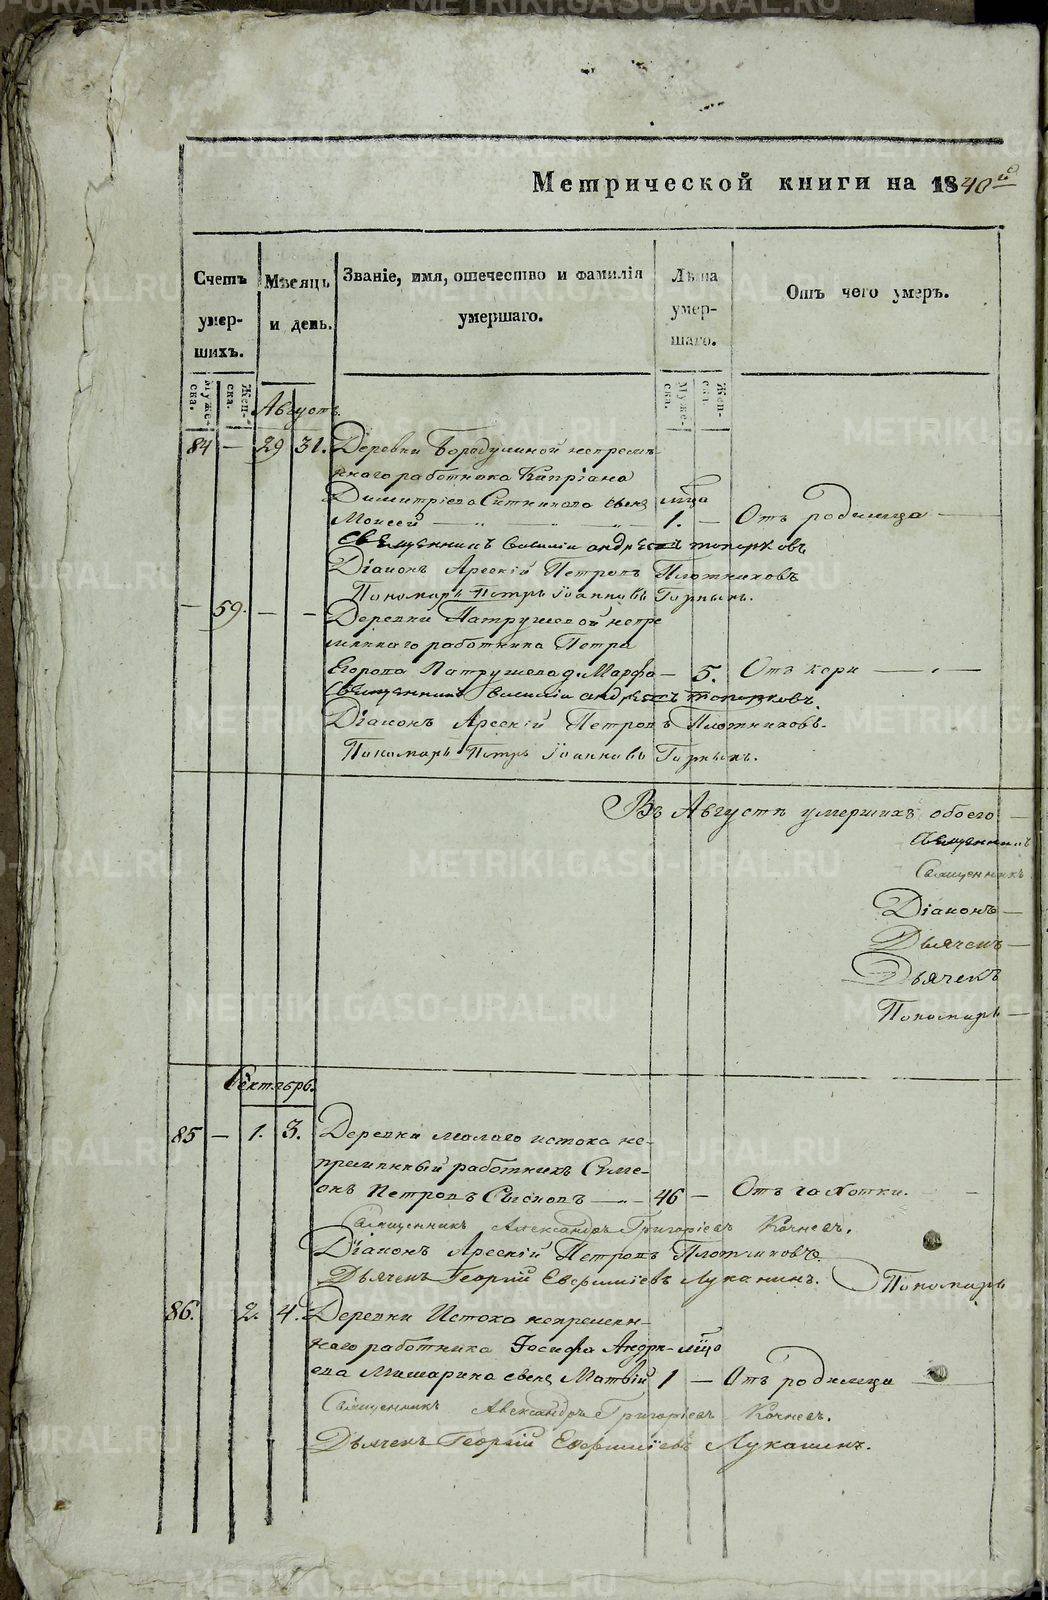 Метрической книги на 1840й
Счетъ умер- шихъ.
Муже- ска.
Жен- ска.
Мѣсяцъ и день.
Званіе, имя, отечество и фамилія
умершаго.
Лѣта умер- шаго.
Муже- ска.
Жен- ска.
Отъ чего умеръ.
Августъ.
84 — 29 31. Деревни Бородулиной непремѣ-
ннаго работника Кипріана
Димитріева Ситникова сынъ мѣца
Моисей 1. — Отъ родимца
Священникъ Василій Андреевъ Топорковъ
Діаконъ Арсеній Петровъ Плотниковъ
Пономарь Петръ Іоанновъ Горныхъ.
— 59. — — Деревни Патрушевой непре
мѣннаго работника Петра
Егорова Патрушева д. Марфа — 5. Отъ кори
Священникъ Василій Андреевъ Топорковъ.
Діаконъ Арсеній Петровъ Плотниковъ.
Пономарь Петръ Іоанновъ Горныхъ.
Въ Августѣ умершихъ обоего
Священникъ
Священникъ
Діаконъ
Дьячекъ
Дьячекъ
Пономарь
Сентябрь.
85 — 1. 3. Деревни Малаго истока не-
премѣнный работникъ Симе-
онъ Петровъ Сысковъ 46 — Отъ чахотки.
Священникъ Александръ Григоріевъ Кочневъ.
Діаконъ Арсеній Петровъ Плотниковъ.
Дьячекъ Георгій Евфиміевъ Луканинъ. Пономарь
86. 2. 4. Деревни Истока непремѣн-
наго работника Іосифа Андре- мѣца
ева Мишарина сынъ Матвій 1 — Отъ родимца
Священникъ Александръ Григоріевъ Кочневъ.
Дьячекъ Георгій Евфиміевъ Луканинъ.